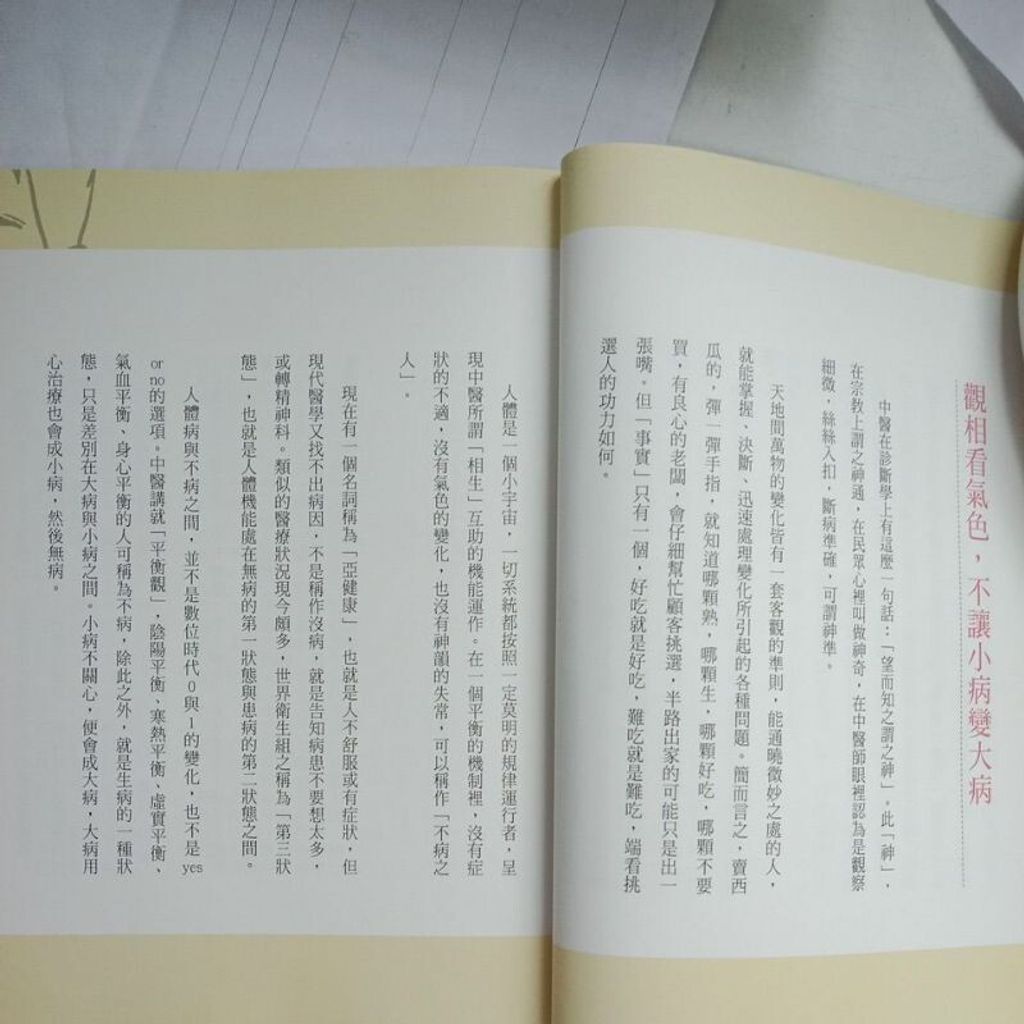 觀相看氣色，不讓小病變大病
中醫在診斷學上有這麼一句話：「望而知之謂之神」。此「神」，
在宗教上謂之神通，在民眾心裡叫做神奇，在中醫師眼裡認為是觀察
細微，絲絲入扣，斷病準確，可謂神準。
天地間萬物的變化皆有一套客觀的準則，能通曉微妙之處的人，
就能掌握、決斷、迅速處理變化所引起的各種問題。簡而言之，賣西
瓜的，彈一彈手指，就知道哪顆熟，哪顆生，哪顆好吃，哪顆不要
買，有良心的老闆，會仔細幫忙顧客挑選，半路出家的可能只是出一
張嘴。但「事實」只有一個，好吃就是好吃，難吃就是難吃，端看挑
選人的功力如何。
人體是一個小宇宙，一切系統都按照一定莫明的規律運行者，呈
現中醫所謂「相生」互助的機能運作。在一個平衡的機制裡，沒有症
狀的不適，沒有氣色的變化，也沒有神韻的失常，可以稱作「不病之
人」。
現在有一個名詞稱為「亞健康」，也就是人不舒服或有症狀，但
現代醫學又找不出病因，不是稱作沒病，就是告知病患不要想太多，
或轉精神科。類似的醫療狀況現今頗多，世界衛生組之稱為「第三狀
態」，也就是人體機能處在無病的第一狀態與患病的第二狀態之間。
人體病與不病之間，並不是數位時代0與1的變化，也不是yes
or no的選項。中醫講就「平衡觀」，陰陽平衡、寒熱平衡、虛實平衡、
氣血平衡、身心平衡的人可稱為不病，除此之外，就是生病的一種狀
態，只是差別在大病與小病之間。小病不關心，便會成大病，大病用
心治療也會成小病，然後無病。